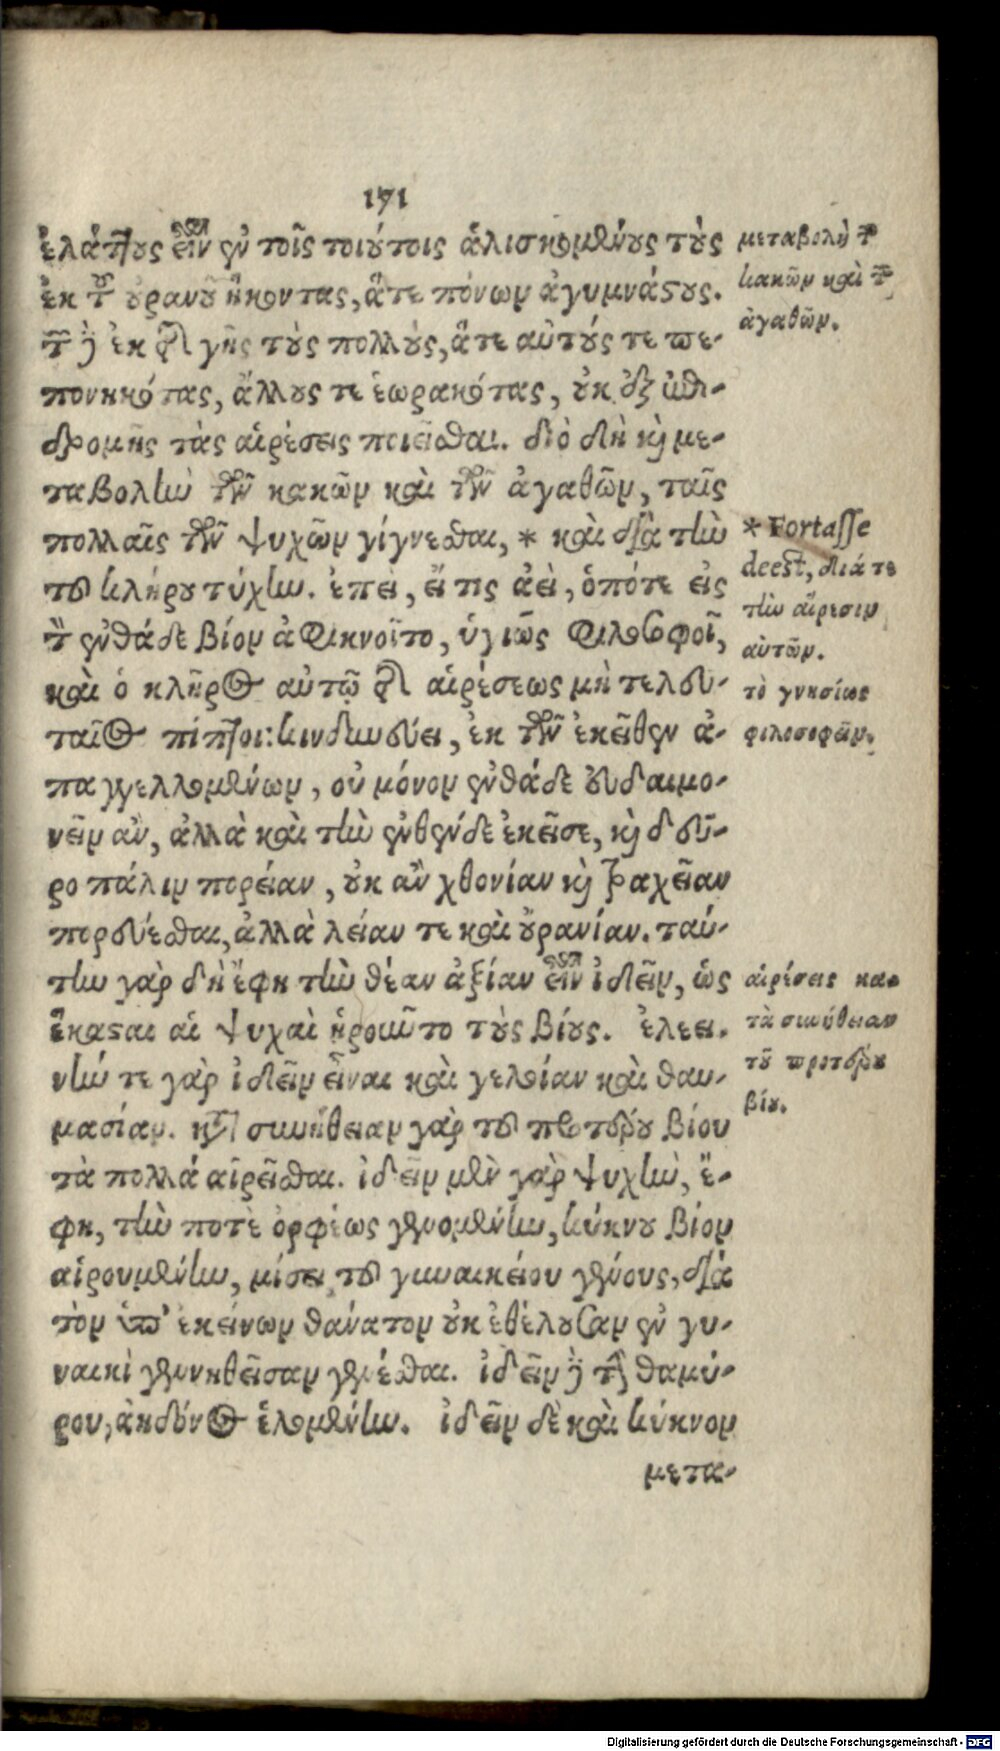 171
ἐλάττους εἶναι ἐν τοῖς τοιούτοις ἁλισκομένους τοὺς
ἐκ τοῦ οὐρανοῦ ἥκοντας, ἅτε πόνων ἀγυμνάστους.
τῶν δὲ ἐκ τῆς γῆς τοὺς πολλοὺς, ἅτε αὐτούς τε πε-
πονηκότας, ἄλλους τε ἑωρακότας, οὐκ ἐξ ἐπι-
δρομῆς τὰς αἱρέσεις ποιεῖσθαι. διὸ δὴ καὶ με-
ταβολὴν τῶν κακῶν καὶ τῶν ἀγαθῶν, ταῖς
πολλαῖς τῶν ψυχῶν γίγνεσθαι, * καὶ διὰ τὴν
τοῦ κλήρου τύχην. ἐπεὶ, εἴ τις ἀεὶ, ὁπότε εἰς
τὸν ἐνθάδε βίον ἀφικνοῖτο, ὑγιῶς φιλοσοφοῖ,
καὶ ὁ κλῆρος αὐτῷ τῆς αἱρέσεως μὴ τελευ-
ταῖος πίπτοι: κινδυνεύει, ἐκ τῶν ἐκεῖθεν ἀ-
παγγελλομένων, οὐ μόνον ἐνθάδε εὐδαιμο-
νεῖν ἂν, ἀλλὰ καὶ τὴν ἐνθένδε ἐκεῖσε, καὶ δεῦ-
ρο πάλιν πορείαν, οὐκ ἂν χθονίαν καὶ τραχεῖαν
πορεύεσθαι, ἀλλὰ λείαν τε καὶ οὐρανίαν. ταύ-
την γὰρ δὴ ἔφη τὴν θέαν ἀξίαν εἶναι ἰδεῖν, ὡς
ἕκασται αἱ ψυχαὶ ᾑροῦντο τοὺς βίους. ἐλεει-
νήν τε γὰρ ἰδεῖν εἶναι καὶ γελοίαν καὶ θαυ-
μασίαν. κατὰ συνήθειαν γὰρ τοῦ προτέρου βίου
τὰ πολλὰ αἱρεῖσθαι. ἰδεῖν μὲν γὰρ ψυχὴν, ἔ-
φη, τὴν ποτὲ ὀρφέως γενομένην, κύκνου βίον
αἱρουμένην, μίσει τοῦ γυναικείου γένους, διὰ
τὸν ὑπ' ἐκείνων θάνατον οὐκ ἐθέλουσαν ἐν γυ-
ναικὶ γεννηθεῖσαν γενέσθαι. ἰδεῖν δὲ τὴν θαμύ-
ρου, ἀηδόνος ἑλομένην. ἰδεῖν δὲ καὶ κύκνον
μετα-
μεταβολὴ τῶν
κακῶν καὶ τῶν
ἀγαθῶν.
* Fortasse
deest, διά τε
τὴν αἵρεσιν
αὐτῶν.
τὸ γνησίως
φιλοσοφεῖν.
αἱρέσεις κα-
τὰ συνήθειαν
τοῦ προτέρου
βίου.
Digitalisierung gefördert durch die Deutsche Forschungsgemeinschaft - DFG